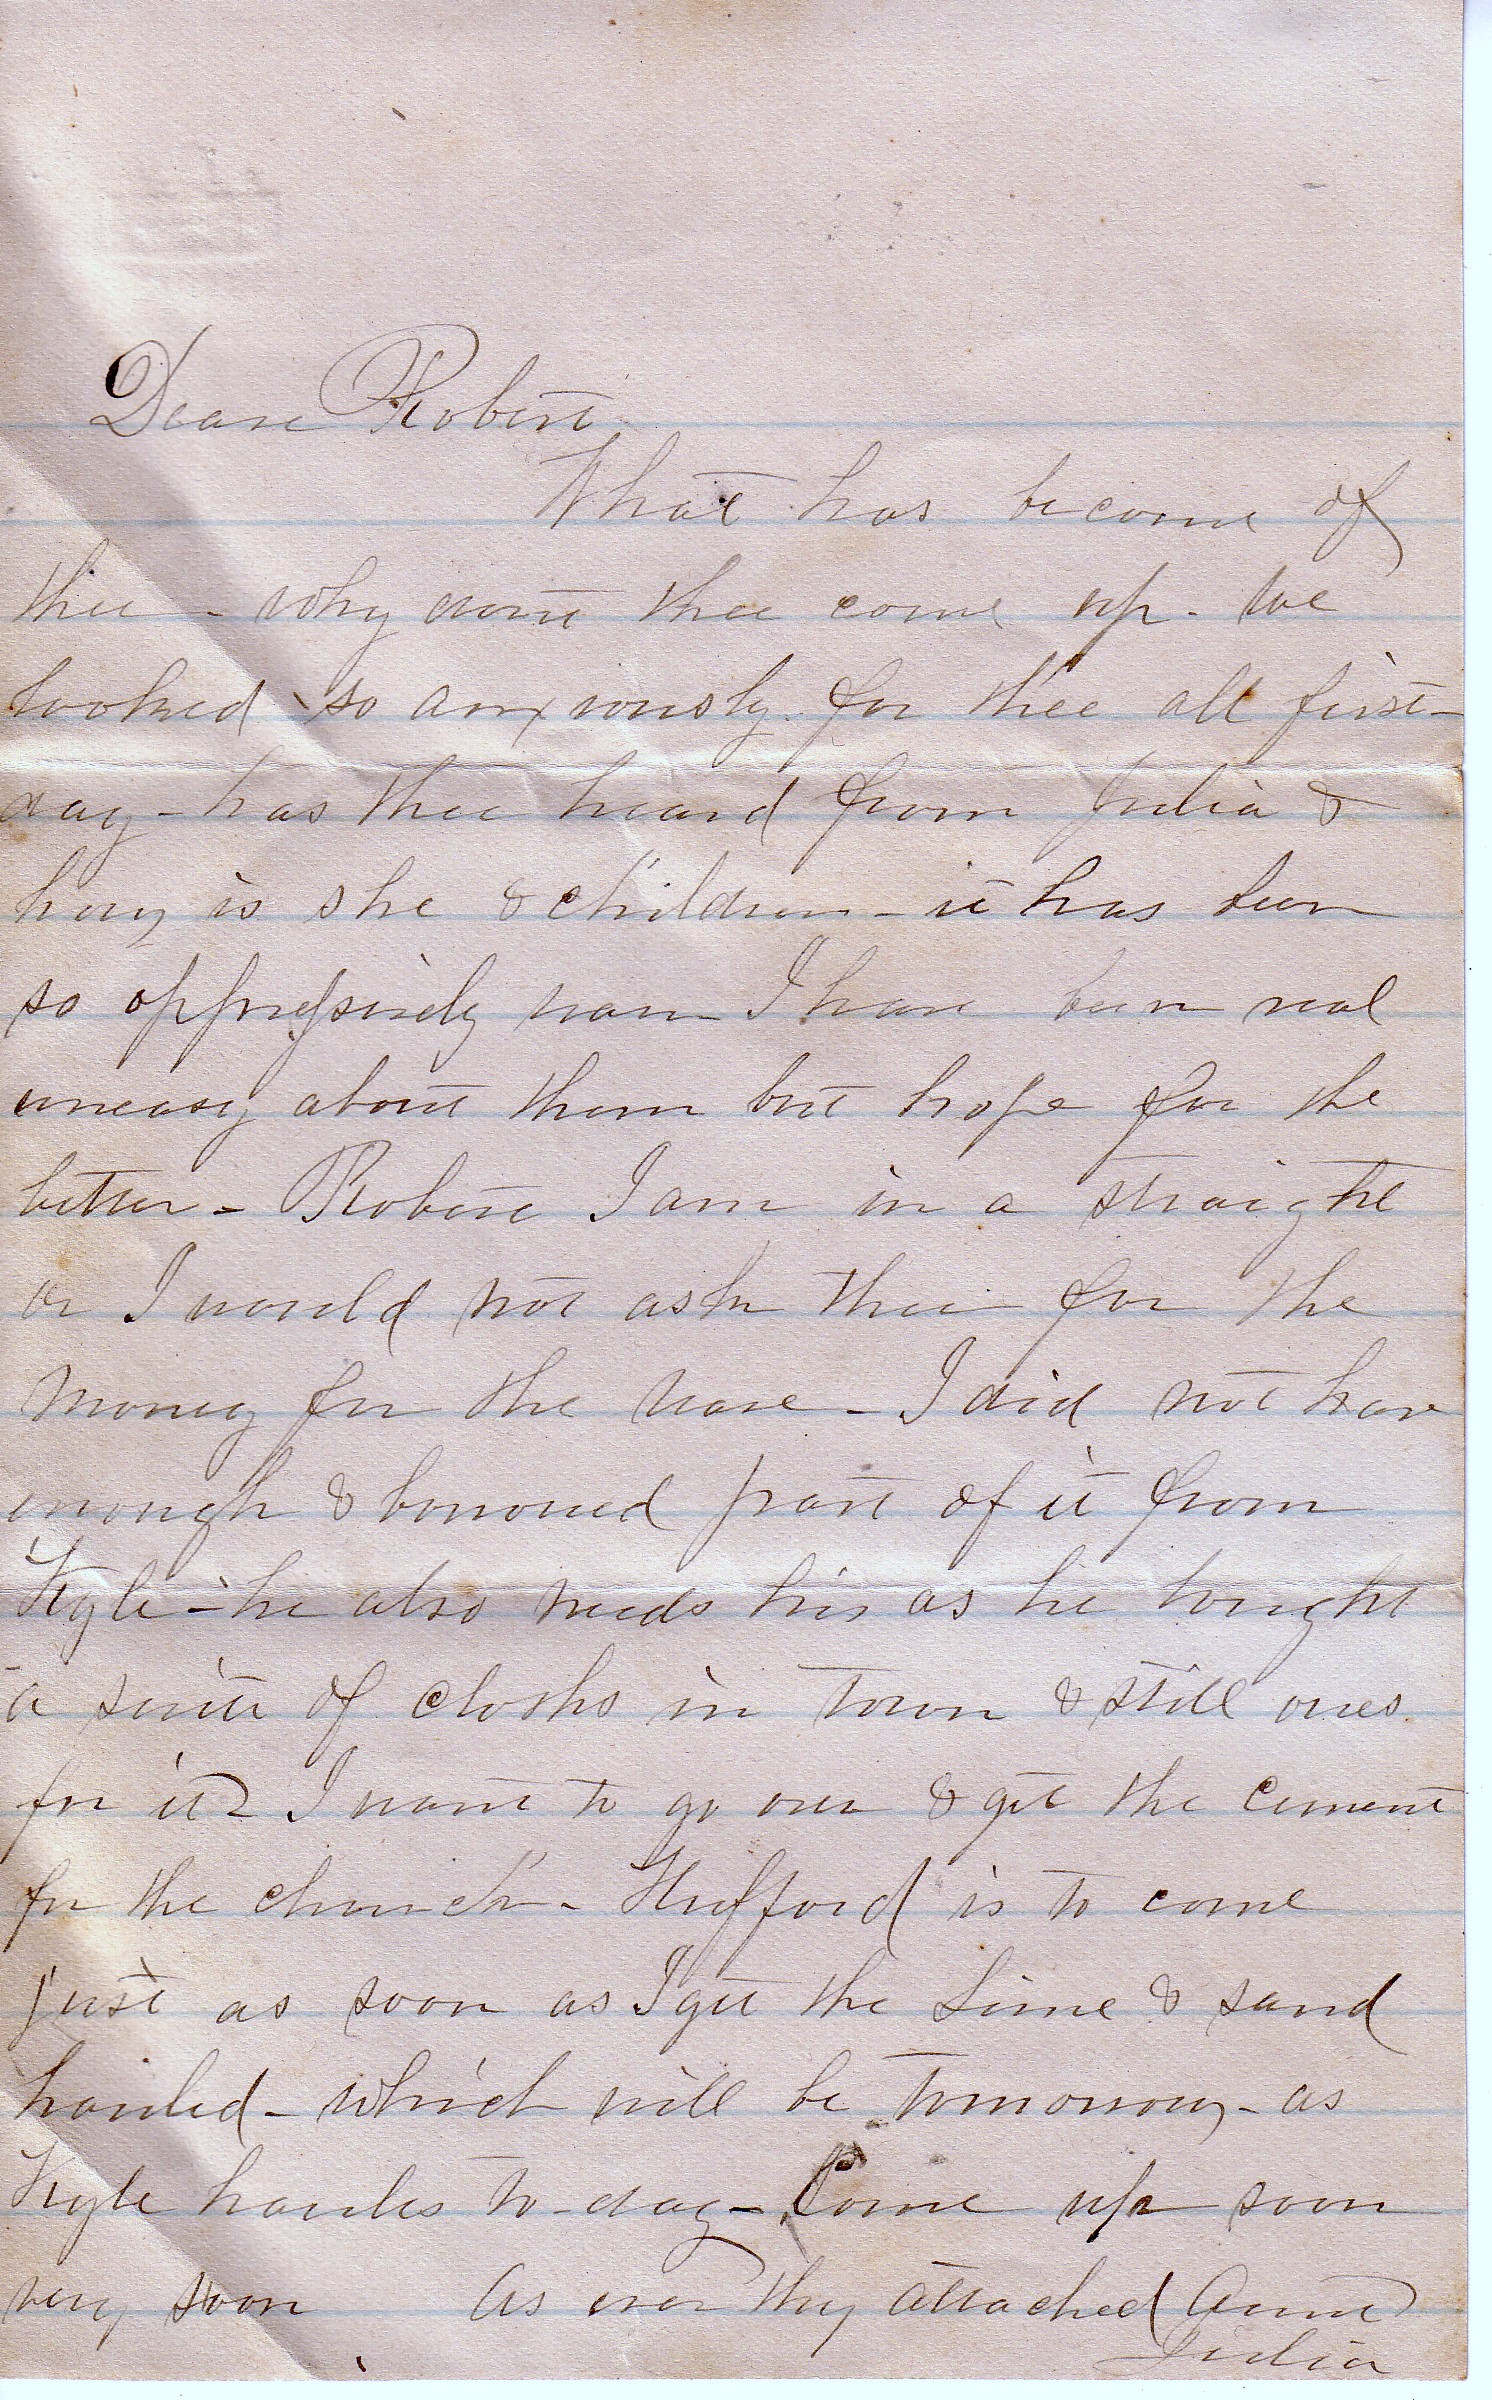 Dear Robert
What has become of
thee - why dont thee come up - we
looked so anxiously for thee all first-
day - has thee heard from Julia &
how is she & children - it has been
so oppressively warm I have been real
uneasy about them but hope for the
better - Robert I am in a straight
or I would not ask thee for the
money for the vase - I did not have
enough & borrowed part of it from
Kyle - he also needs his as he bought
a suit of cloths in town & still owes
for it I want to go over & get the cement
for the church - Hufford is to come
just as soon as I get the Lime & sand
hauled - which will be tomorrow - as
Kyle hauls to-day - Come up soon
very soon As ever thy attached Aunt
Julia